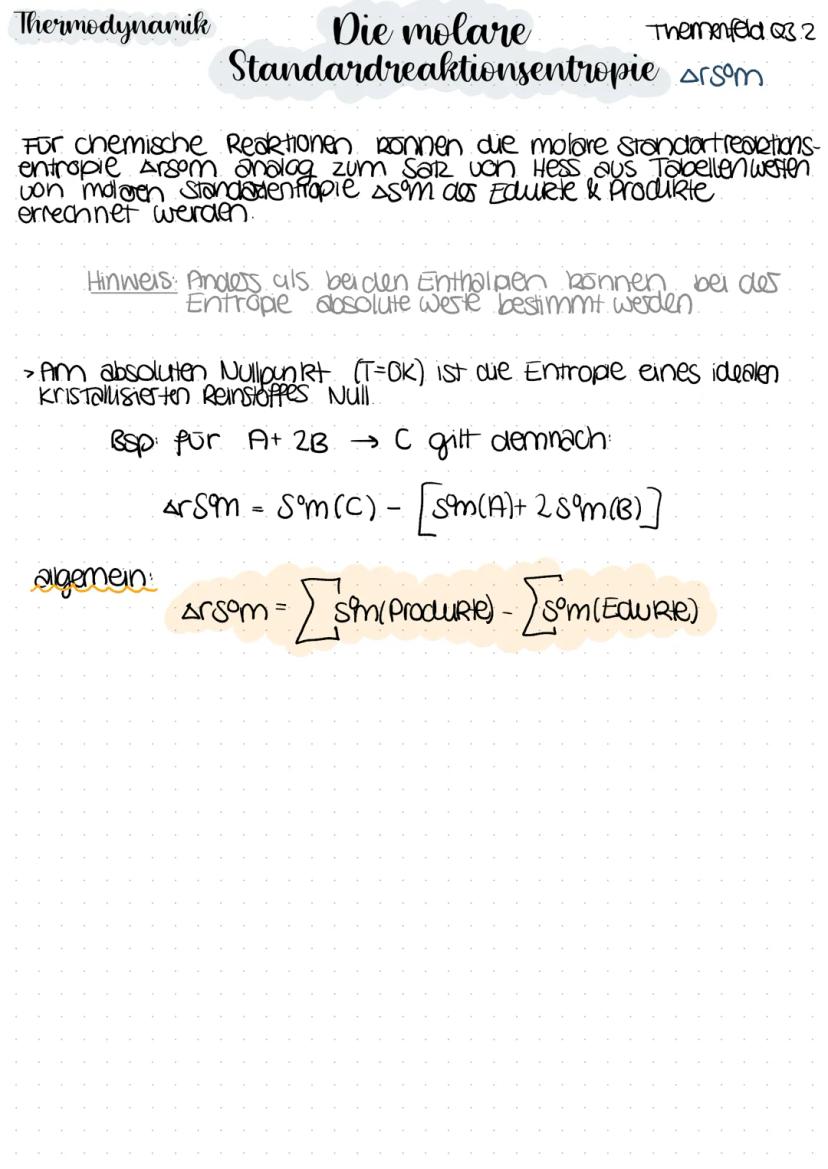 Thermodynamik
Die molare
Themenfeld Q3.2
Standardreaktionsentropie ΔrS°m
Für chemische Reaktionen können die molare Standartreaktions-
entropie ΔrS°m analog zum Satz von Hess aus Tabellenwerten
von molaren Standardentropie ΔS°m der Edukte & Produkte
errechnet werden.
Hinweis: Anders als bei den Enthalpien können bei der
Entropie absolute Werte bestimmt werden
> Am absoluten Nullpunkt (T=0K) ist die Entropie eines idealen
kristallisierten Reinstoffes Null.
Bsp: für A+ 2B → C gilt demnach:
ΔrS°m = S°m(C) - [S°m(A)+ 2S°m(B)]
allgemein:
ΔrS°m = ∑S°m(Produkte) - ∑S°m(Edukte)